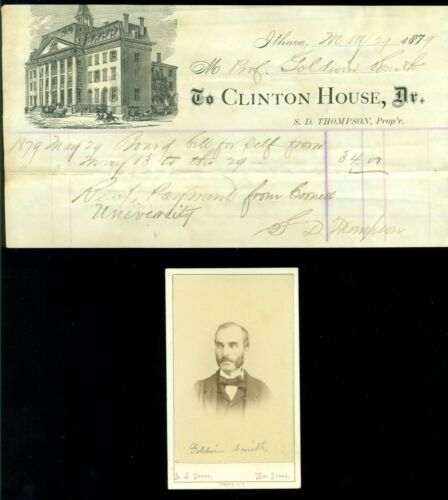 Ithaca, May 29 1879
M Prof. Goldwin Smith
To CLINTON HOUSE, Dr.
S. D. THOMPSON, Prop'r.
1879 May 29 Board bill for self from
May 15 to the 29 34.00
Rect. Payment from Cornell
University
S D Thompson
Goldwin Smith